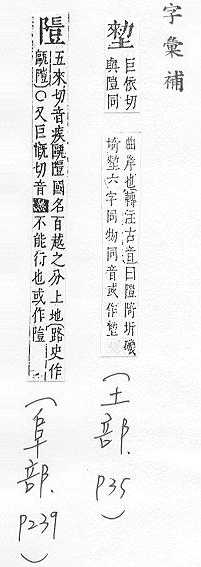 字彙補
巨依切
與隑同
曲岸也轉注古音曰隑圻磯
埼六字同物同音或作
(土部.P35)
隑
五來切音隑國名百越之分上地路史作
隑○又巨慨切音不能行也或作隑
(阜部.P239)